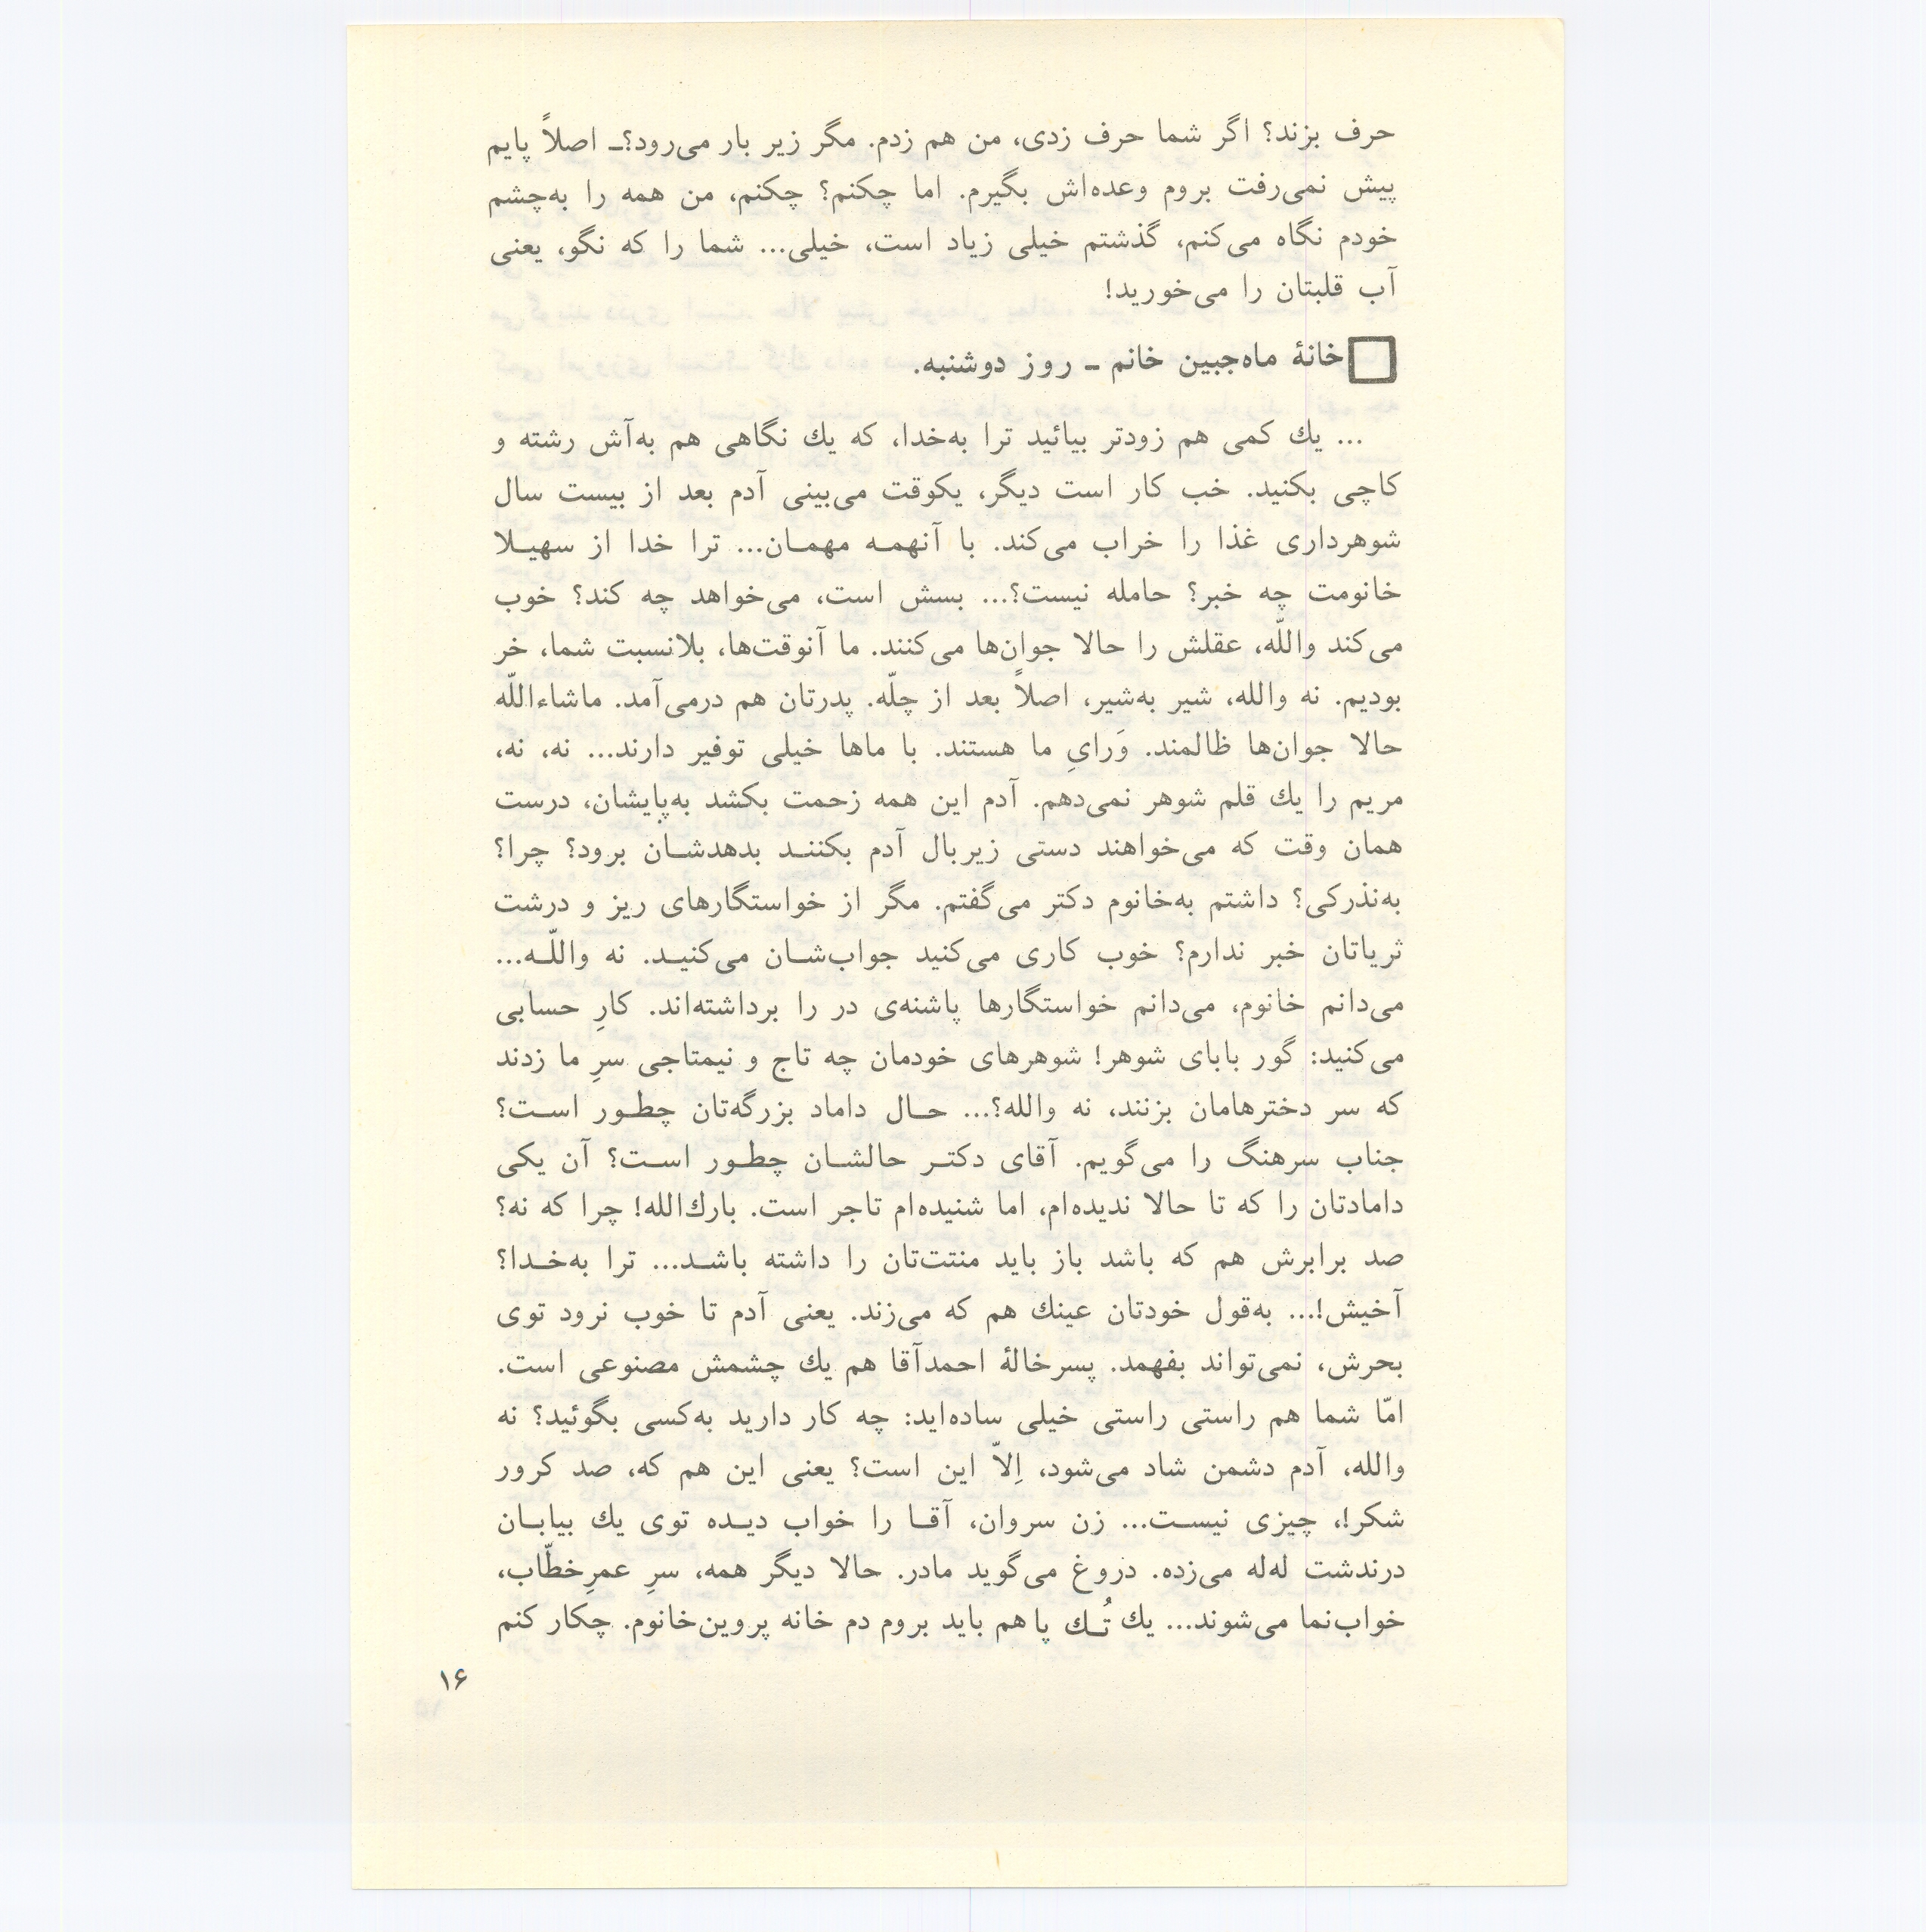 حرف بزند؟ اگر شما حرف زدی، من هم زدم. مگر زیر بار می‌رود؟ـ اصلاً پایم
پیش نمی‌رفت بروم وعده‌اش بگیرم. اما چکنم؟ چکنم، من همه را به‌چشم
خودم نگاه می‌کنم، گذشتم خیلی زیاد است، خیلی... شما را که نگو، یعنی
آب قلبتان را می‌خورید!
خانهٔ ماه‌جبین خانم ـ روز دوشنبه.
... یك کمی هم زودتر بیائید ترا به‌خدا، که یك نگاهی هم به‌آش رشته و
کاچی بکنید. خب کار است دیگر، یکوقت می‌بینی آدم بعد از بیست سال
شوهرداری غذا را خراب می‌کند. با آنهمـه مهمـان... ترا خدا از سهیـلا
خانومت چه خبر؟ حامله نیست؟... بسش است، می‌خواهد چه کند؟ خوب
می‌کند واللّه، عقلش را حالا جوان‌ها می‌کنند. ما آنوقت‌ها، بلانسبت شما، خر
بودیم. نه والله، شیر به‌شیر، اصلاً بعد از چلّه. پدرتان هم درمی‌آمد. ماشاءاللّه
حالا جوان‌ها ظالمند. وَرایِ ما هستند. با ماها خیلی توفیر دارند... نه، نه،
مریم را یك قلم شوهر نمی‌دهم. آدم این همه زحمت بکشد به‌پایشان، درست
همان وقت که می‌خواهند دستی زیربال آدم بکننـد بدهدشـان برود؟ چرا؟
به‌نذرکی؟ داشتم به‌خانوم دکتر می‌گفتم. مگر از خواستگارهای ریز و درشت
ثریاتان خبر ندارم؟ خوب کاری می‌کنید جواب‌شـان می‌کنیـد. نه واللّـه...
می‌دانم خانوم، می‌دانم خواستگارها پاشنه‌ی در را برداشته‌اند. کارِ حسابی
می‌کنید: گور بابای شوهر! شوهرهای خودمان چه تاج و نیمتاجی سرِ ما زدند
که سر دخترهامان بزنند، نه والله؟... حـال داماد بزرگه‌تان چطـور اسـت؟
جناب سرهنگ را می‌گویم. آقای دکتـر حالشـان چطـور اسـت؟ آن یکی
دامادتان را که تا حالا ندیده‌ام، اما شنیده‌ام تاجر است. بارك‌الله! چرا که نه؟
صد برابرش هم که باشد باز باید منتت‌تان را داشته باشـد... ترا به‌خـدا؟
آخیش!... به‌قول خودتان عینك هم که می‌زند. یعنی آدم تا خوب نرود توی
بحرش، نمی‌تواند بفهمد. پسرخالهٔ احمدآقا هم یك چشمش مصنوعی است.
امّا شما هم راستی راستی خیلی ساده‌اید: چه کار دارید به‌کسی بگوئید؟ نه
والله، آدم دشمن شاد می‌شود، اِلاّ این است؟ یعنی این هم که، صد کرور
شکر!، چیزی نیسـت... زن سروان، آقـا را خواب دیـده توی یك بیابـان
درندشت له‌له می‌زده. دروغ می‌گوید مادر. حالا دیگر همه، سرِ عمرِخطّاب،
خواب‌نما می‌شوند... یك تُـك پا هم باید بروم دم خانه پروین‌خانوم. چکار کنم
۱۶